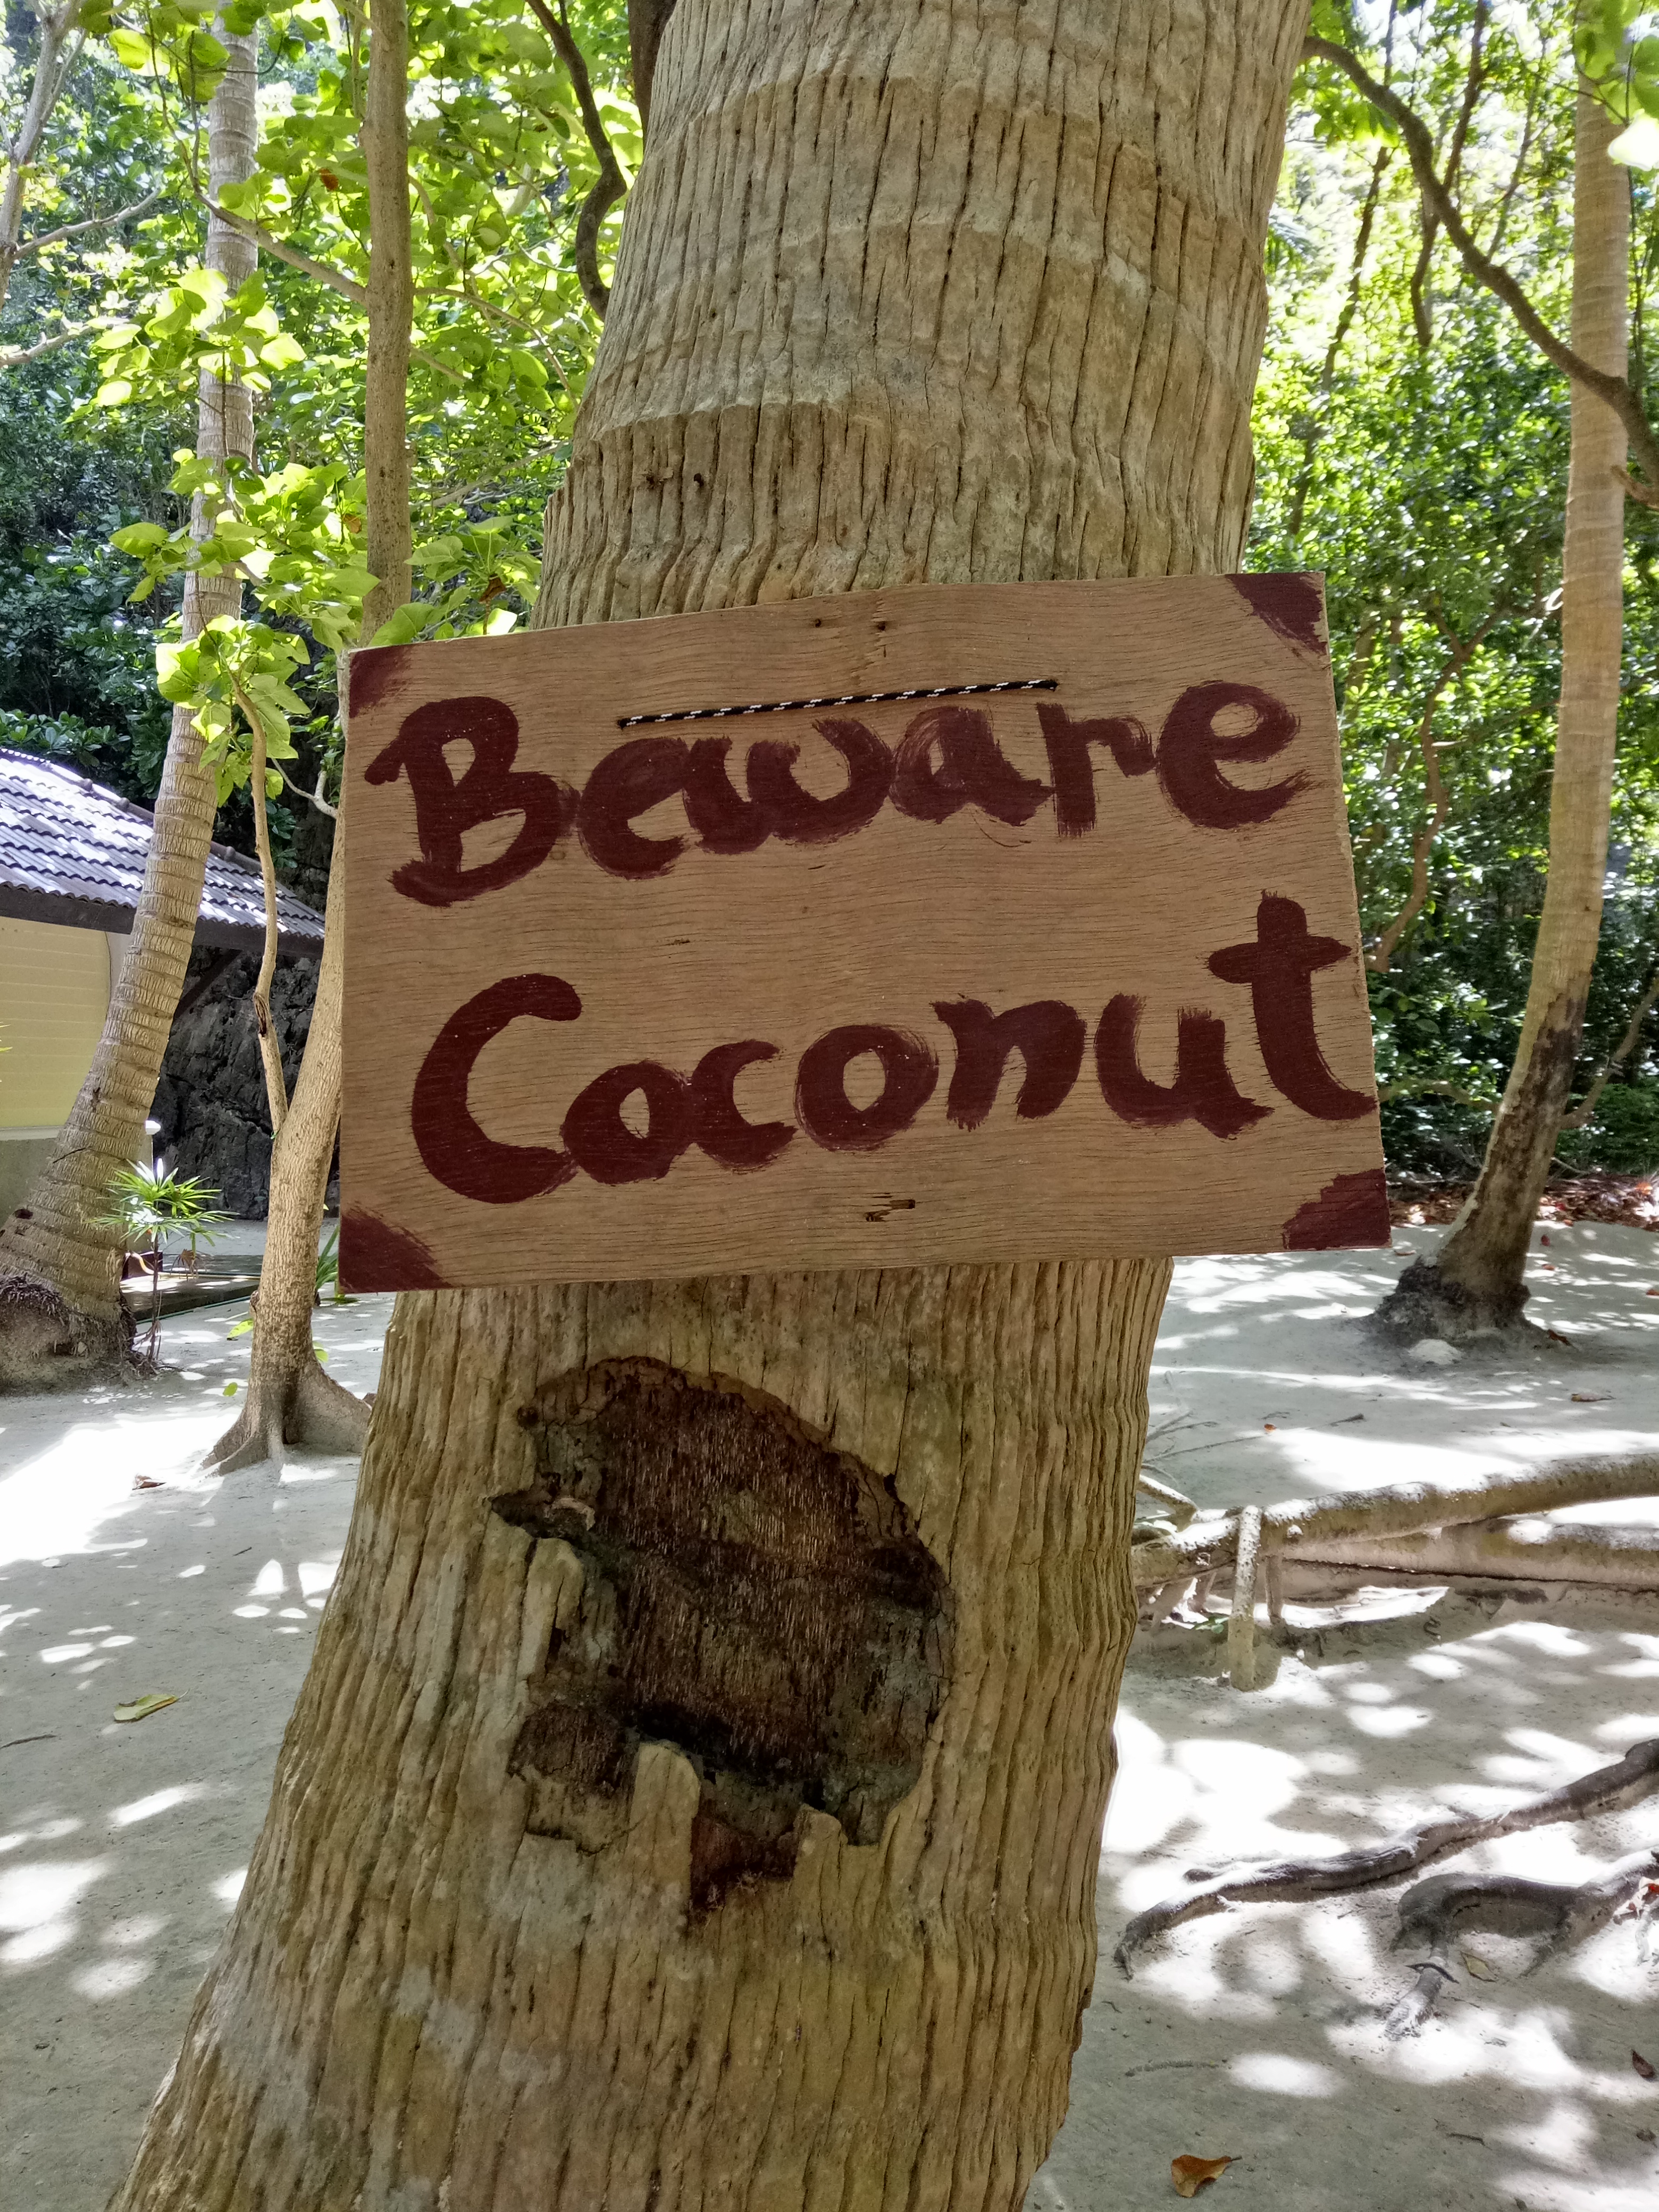 Beware
Coconut